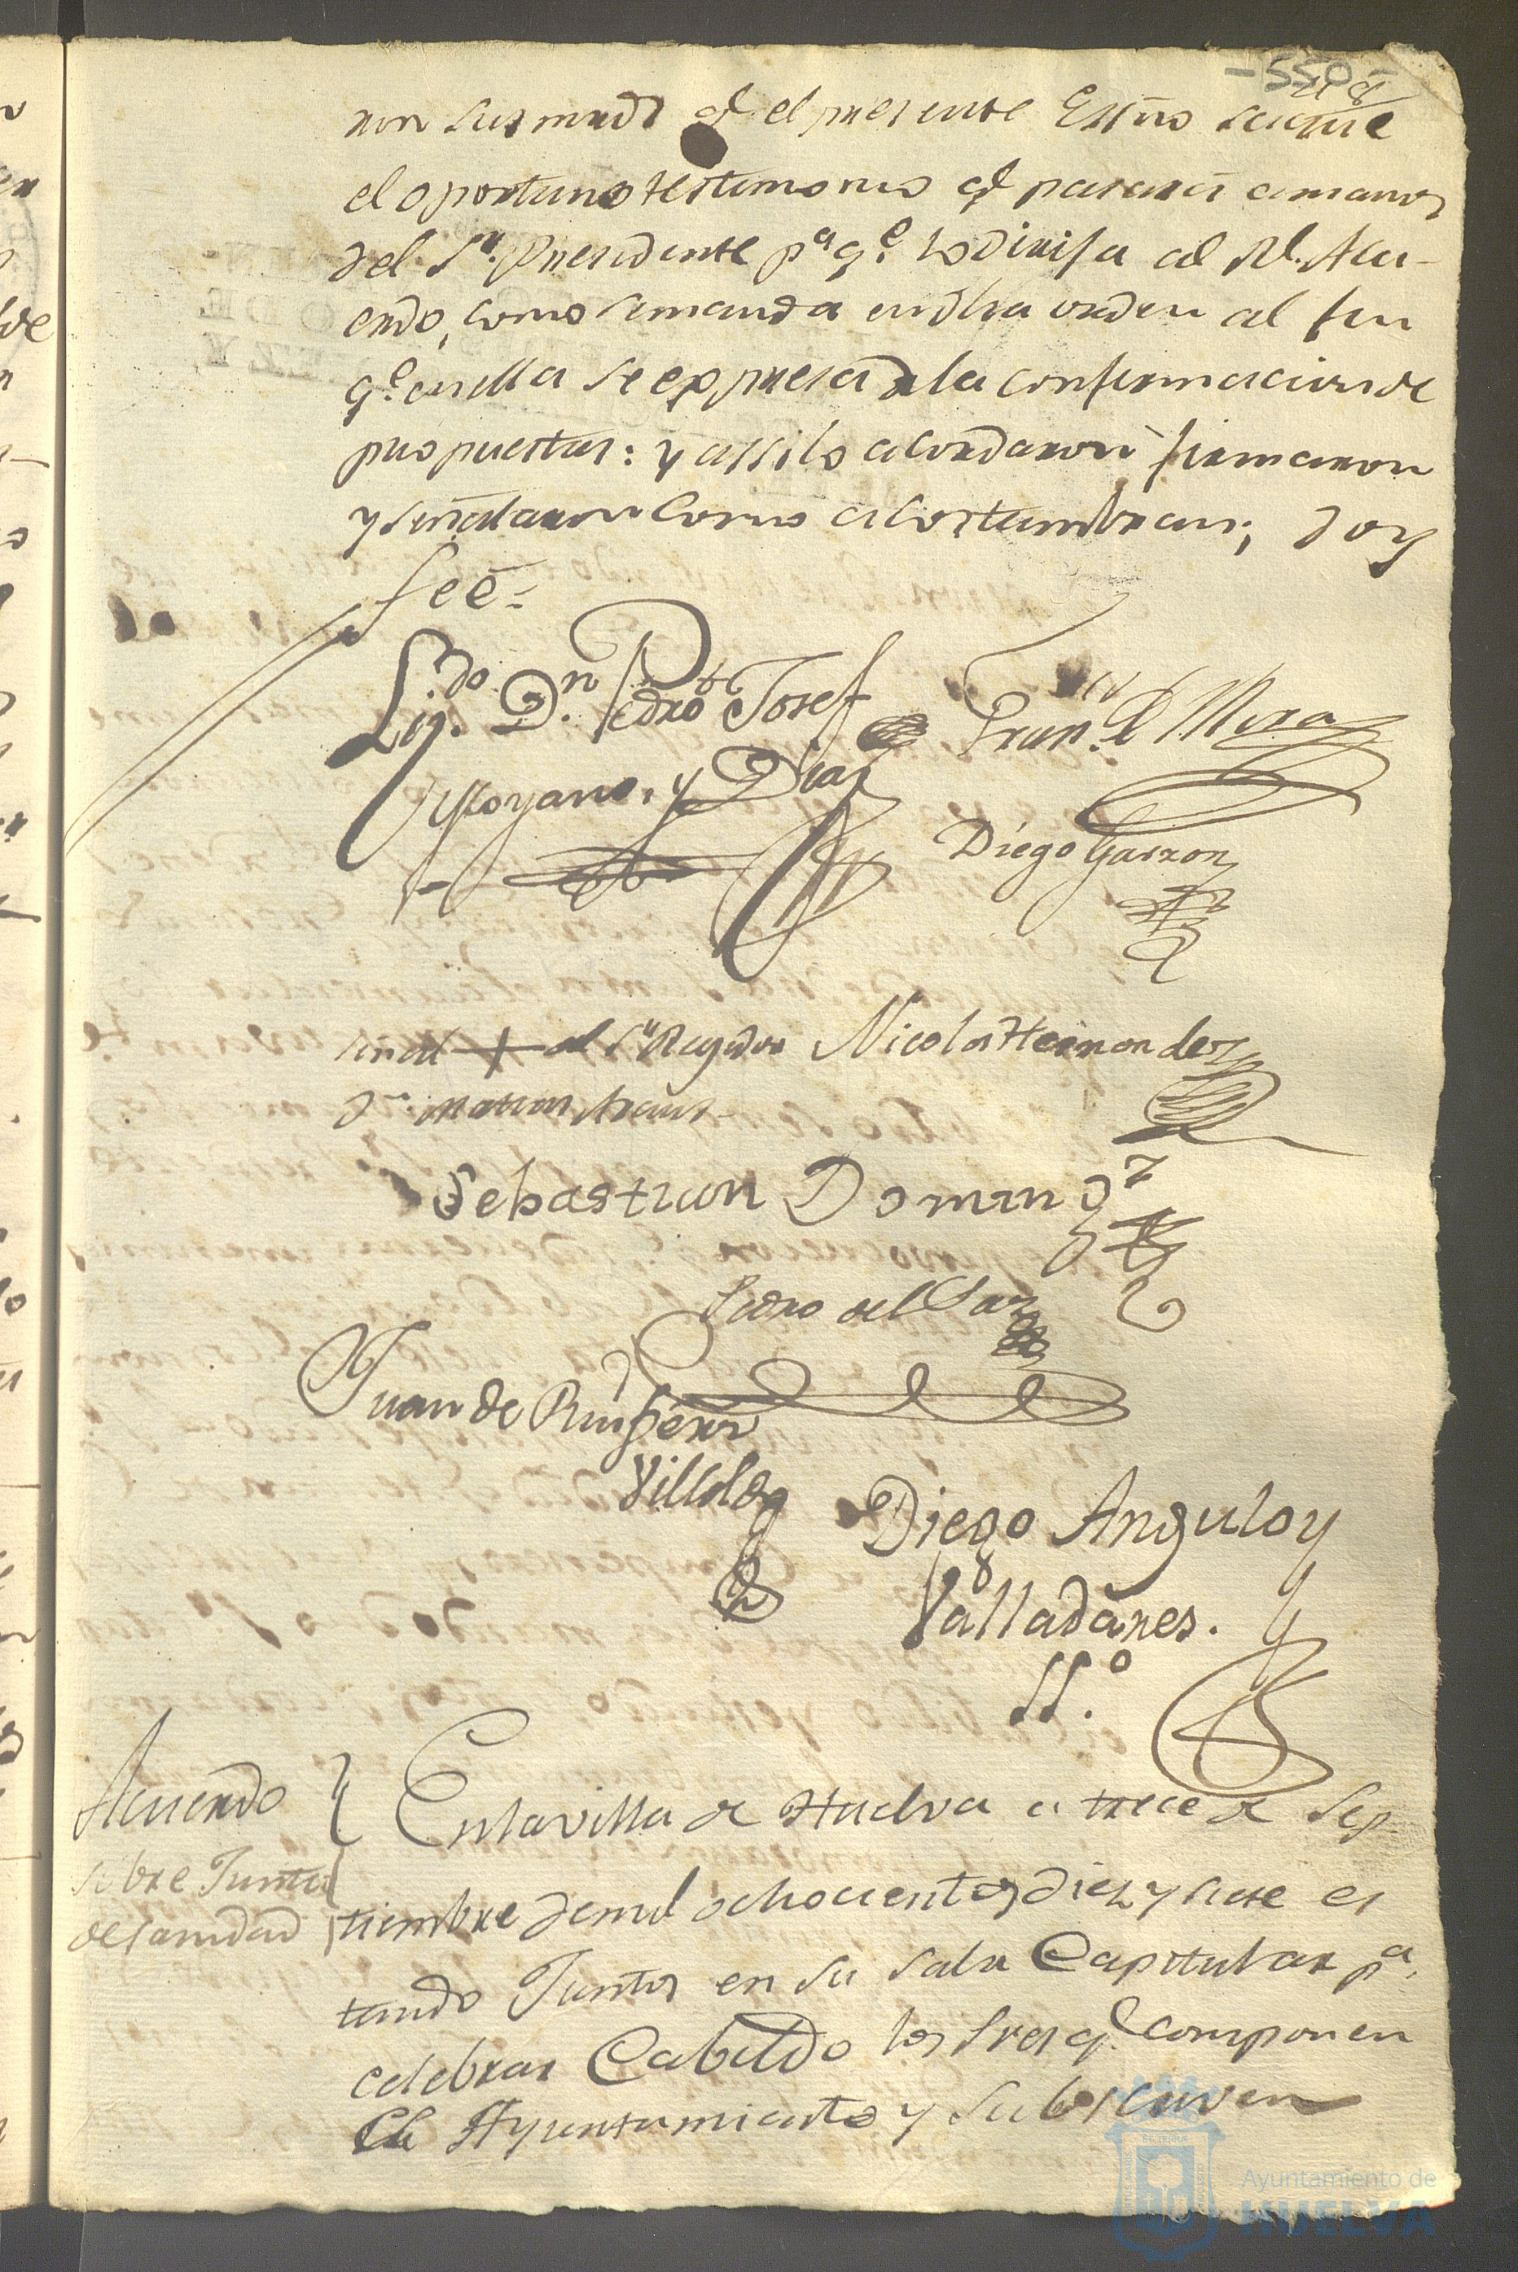 -550-
ron sus mrds qe el presente Essno saque
el oportuno testimonio qe pasará a manos
del Sr. Presidente pa qe. lo dirija al Rl. Acu-
erdo, como se manda en dha orden al fin
qe. en ella se expresa de la confirmacion de
propuestas: y assi lo acordaron firmaron
y señalaron como acostumbran; doy
fee=
Lizdo. Dn. Pedro Josef
Moyano, y Diaz
Frann. de Mora
Diego Garzon
señal + del Sr Regidor
Nicolas Hernandez
Dn. Matias
Sebastian Domingz
Pedro del Paz
Juan de
Villalo
Diego Angulo y
Valladares.
SSo.
Acuerdo
sobre Junta
de sanidad
En la villa de Huelva a trece de Sep-
tiembre de mil ochocientos diez y siete es
tando Juntos en su sala Capitular pa.
celebrar Cabildo los Sres qe componen
el Ayuntamiento y subscriven
Ayuntamiento de
HUELVA